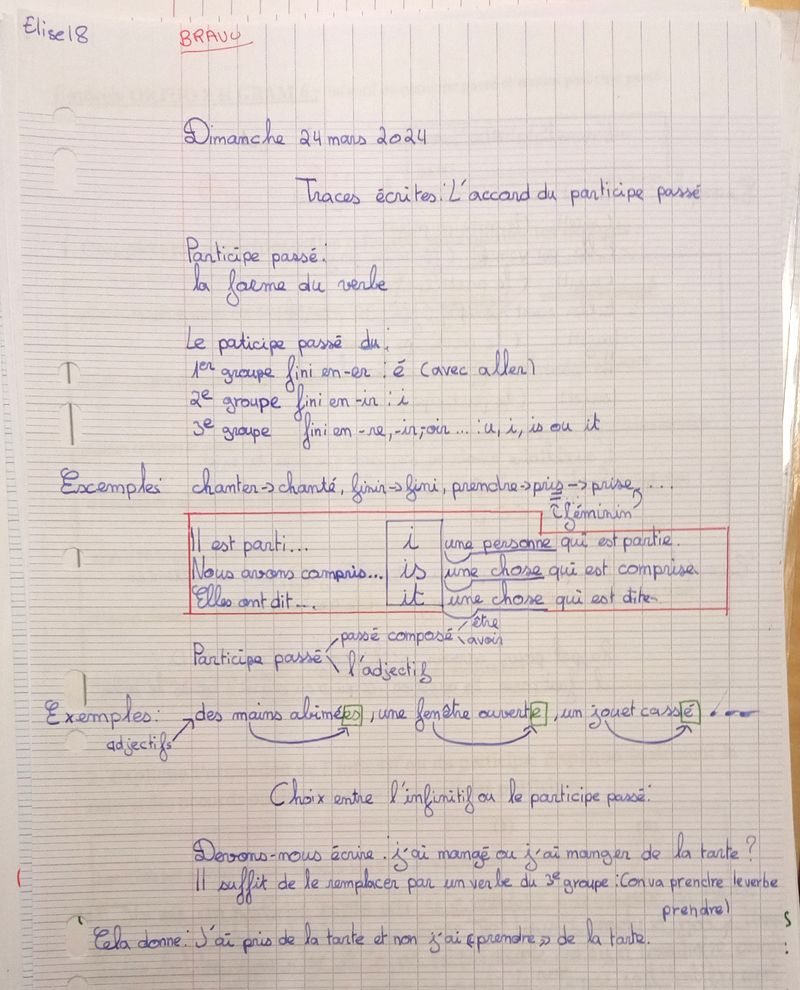 Elise18
BRAVO
Dimanche 24 mars 2024
Traces écrites: L'accord du participe passé
Participe passé:
la forme du verbe
Le paticipe passé du:
1er groupe fini en -er : é (avec aller)
2e groupe fini en -ir : i
3e groupe fini en -re, -ir, oir ... : u, i, is ou it
Excemples: chanter -> chanté, finir -> fini, prendre -> pris -> prise, ...
féminin
Il est parti... i une personne qui est partie.
Nous avons compris... is une chose qui est comprise.
Elles ont dit... it une chose qui est dite.
être
Participe passé passé composé avoir
l'adjectif
Exemples: des mains abimées, une fenêtre ouverte, un jouet cassé ...
adjectifs
Choix entre l'infinitif ou le participe passé:
Devons-nous écrire : j'ai mangé ou j'ai manger de la tarte?
Il suffit de le remplacer par un verbe du 3e groupe : (on va prendre le verbe
prendre)
Cela donne: J'ai pris de la tarte et non j'ai «prendre» de la tarte.